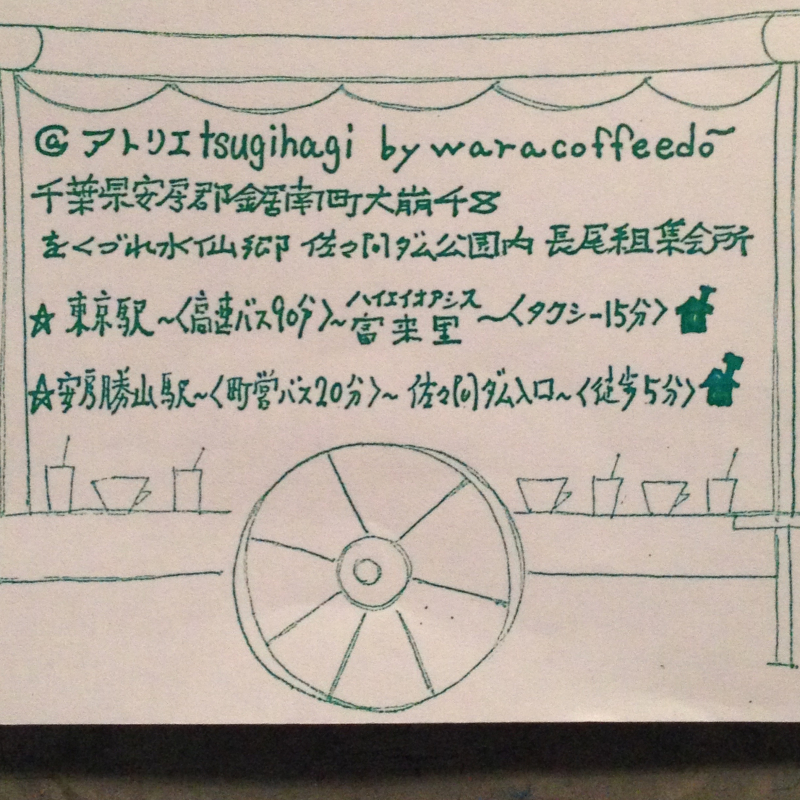 @ アトリエtsugihagi by waracoffeedo~
千葉県安房郡鋸南町大崩48
をくづれ水仙郷 佐々間ダム公園内 長尾組集会所
☆東京駅～〈高速バス90分〉～ハイウェイオアシス富来里～〈タクシー15分〉
☆安房勝山駅～〈町営バス20分〉～佐々間ダム入口～〈徒歩5分〉